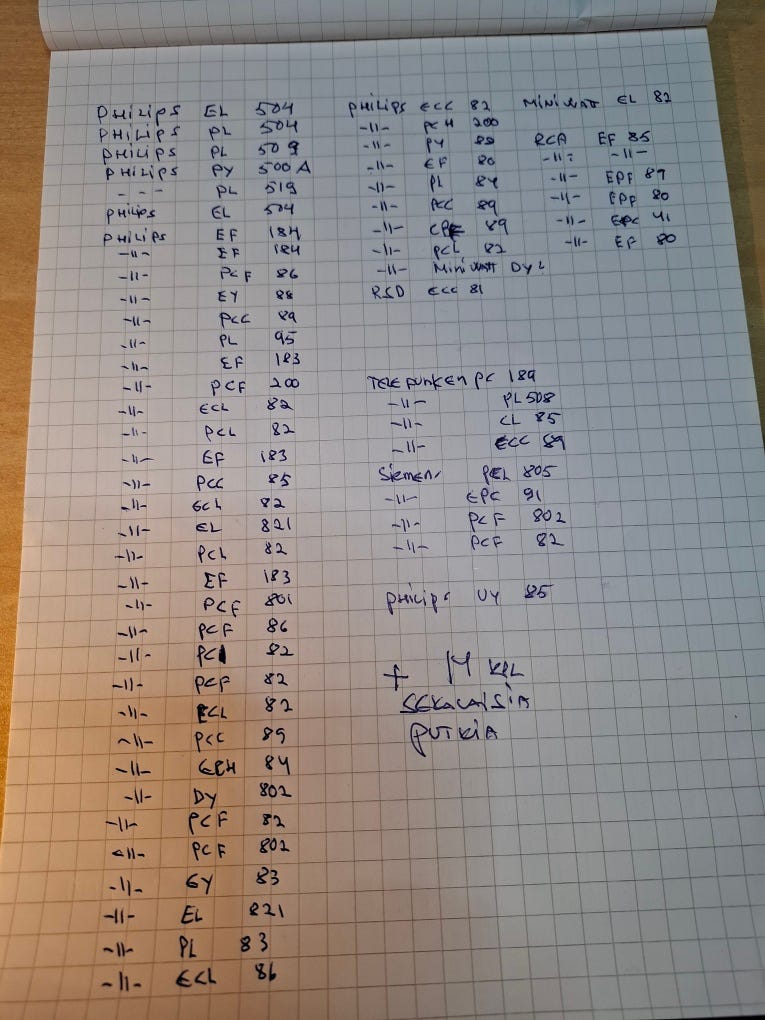 PHILIPS EL 504
PHILIPS PL 504
PHILIPS PL 509
PHILIPS PY 500 A
- - - PL 519
PHILIPS EL 504
PHILIPS EF 184
-11- EF 184
-11- PCF 86
-11- EY 88
-11- PCC 89
-11- PL 95
-11- EF 183
-11- PCF 200
-11- ECL 82
-11- PCL 82
-11- EF 183
-11- PCC 85
-11- ECL 82
-11- EL 821
-11- PCL 82
-11- EF 183
-11- PCF 801
-11- PCF 86
-11- 82
-11- PCF 82
-11- ECL 82
-11- PCC 89
-11- ECH 84
-11- DY 802
-11- PCF 82
-11- PCF 802
-11- GY 83
-11- EL 821
-11- PL 83
-11- ECL 86
PHILIPS ECC 82
-11- PCH 200
-11- PY 88
-11- EF 80
-11- PL 84
-11- PCC 89
-11- 89
-11- PCL 82
-11- MINIWATT DY
RSD ECC 81
TELEFUNKEN PC 189
-11- PL 508
-11- CL 85
-11- ECC 89
Siemens PCL 805
-11- EPC 91
-11- PCF 802
-11- PCF 82
PHILIPS UY 85
+ 14 KPL
SEKALAISIA
PUTKIA
MINIWATT EL 82
RCA EF 85
-11- -11-
-11- EPF 89
-11- EPF 80
-11- 41
-11- EF 80